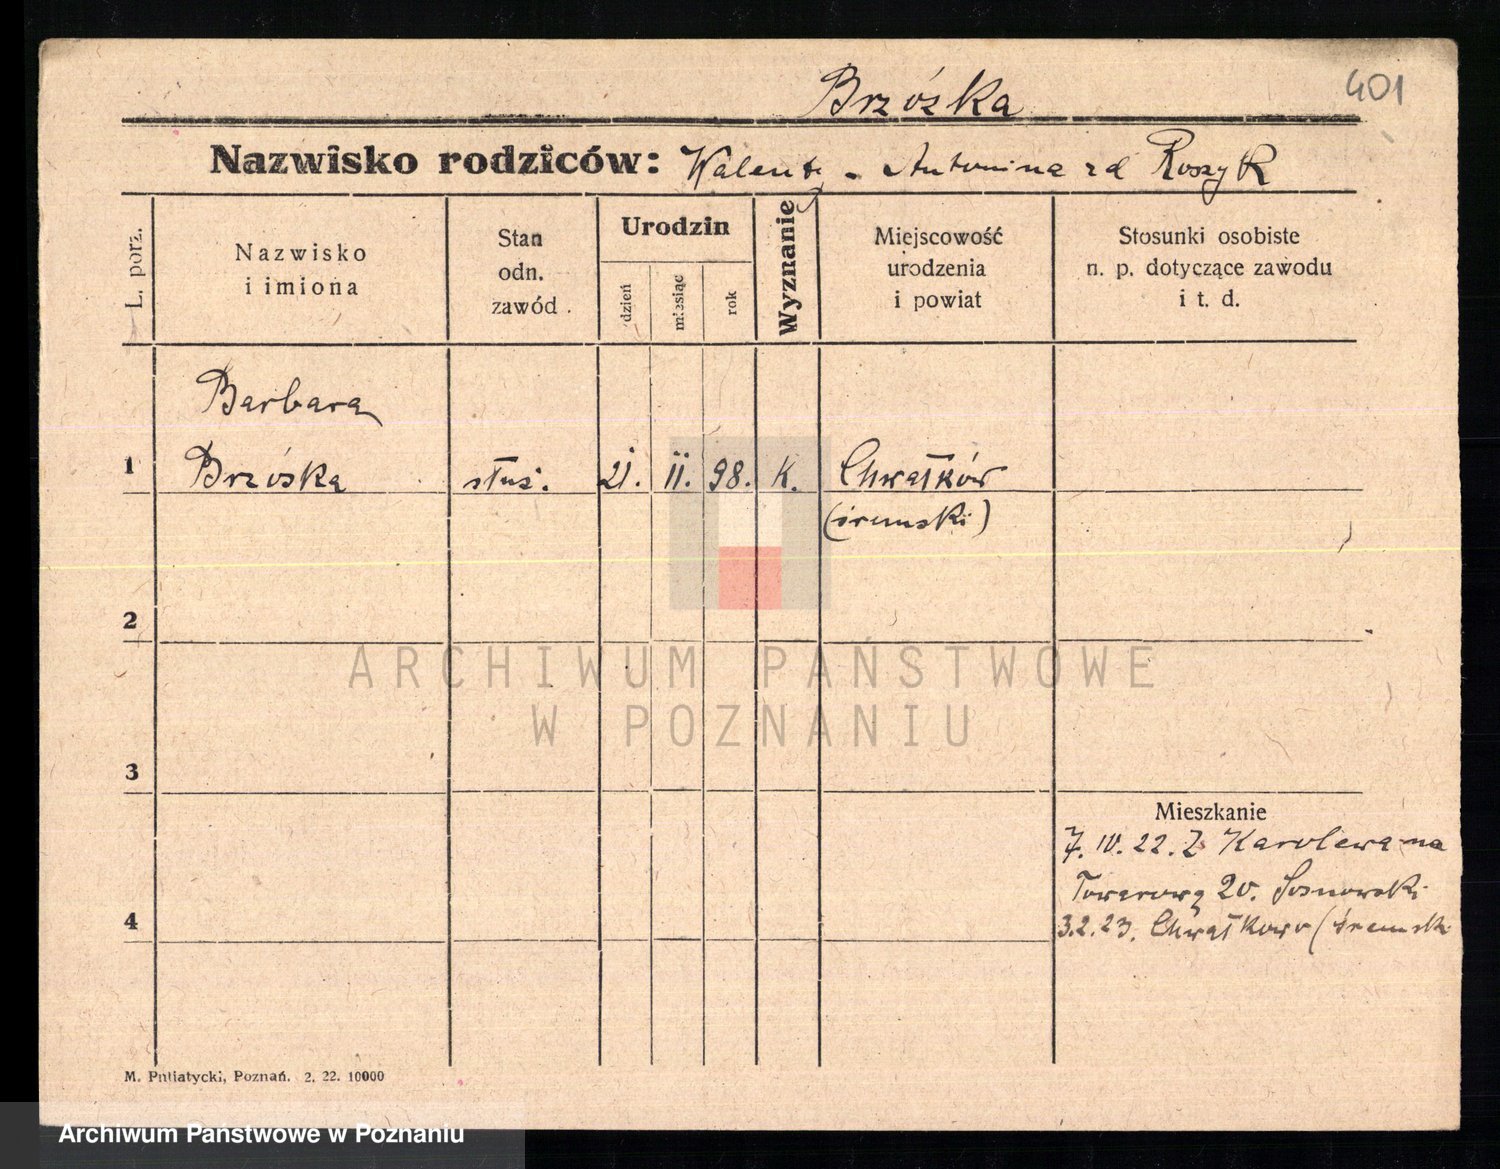 Brzóska
401
Nazwisko rodziców: Walenty - Antonina zd Roszyk
L. porz.
Nazwisko
i imiona
Stan
odn.
zawód
Urodzin
dzień
miesiąc
rok
Wyznanie
Miejscowość
urodzenia
i powiat
Stosunki osobiste
n. p. dotyczące zawodu
i t. d.
Barbara
1 Brzóska służ. 21. II. 98. K. Chwałków
(śremski)
2
ARCHIWUM PAŃSTWOWE
W POZNANIU
3
Mieszkanie
7. IV. 22. Z Karolewa na
Towarową 20. Sosnowski
4 3.2.23. Chwałkowo (śremsk
M. Putiatycki, Poznań. 2. 22. 10000
Archiwum Państwowe w Poznaniu